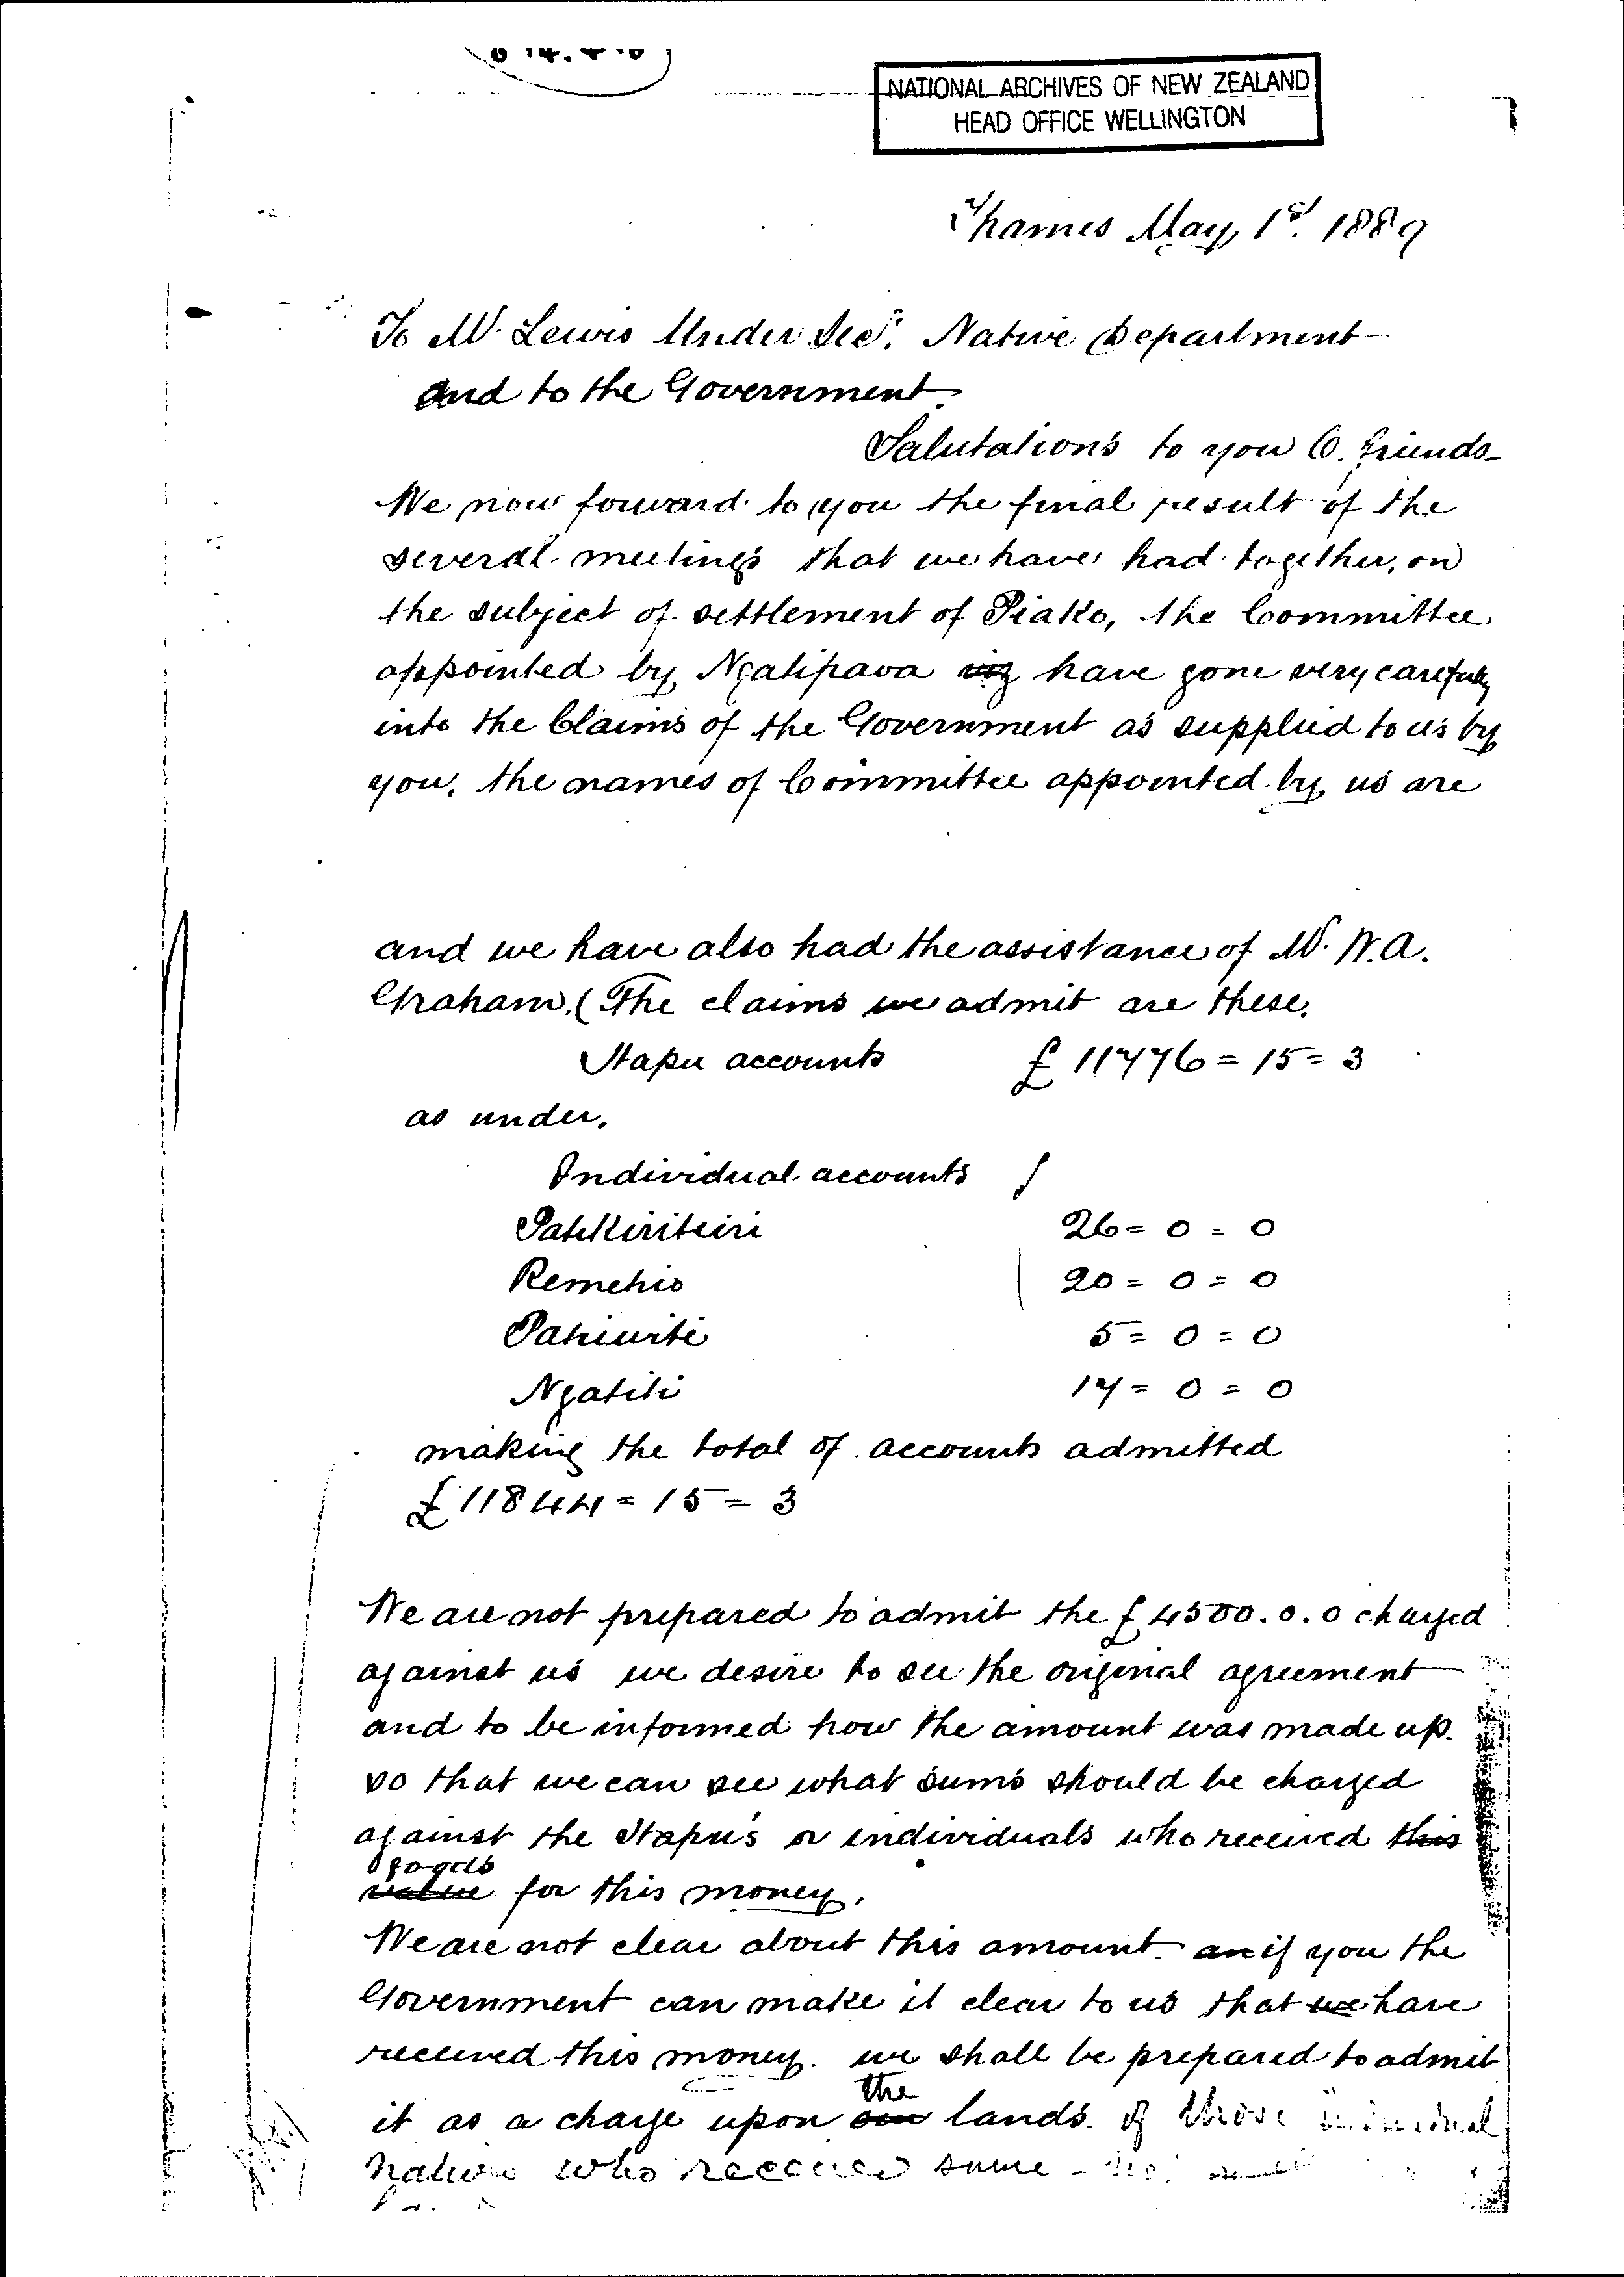 NATIONAL ARCHIVES OF NEW ZEALAND
HEAD OFFICE WELLINGTON
Thames May 1st. 1889
To Mr. Lewis Under Secy. Native Department
and to the Government.
Salutations to you O. friends
We now forward to you the final result of the
several meetings that we have had together, on
the subject of settlement of Piako, the Committee
appointed by Ngatipaoa viz have gone very carefully
into the Claims of the Government as supplied to us by
you, the names of Committee appointed by us are
and we have also had the assistance of Mr. W.A.
Graham. (The claims we admit are these.
Hapu accounts £ 11776 = 15 = 3
as under.
Individual accounts
26 = 0 = 0
Remehio 20 = 0 = 0
5 = 0 = 0
17 = 0 = 0
making the total of accounts admitted
£11844 = 15 = 3
We are not prepared to admit the £4500.0.0 charged
against us we desire to see the original agreement
and to be informed how the amount was made up.
so that we can see what sums should be charged
against the Hapu's or individuals who received this
goods
value for this money.
We are not clear about this amount. an if you the
Government can make it clear to us that we have
received this money. we shall be prepared to admit
the
it as a charge upon our lands. of those individual
natives who received same